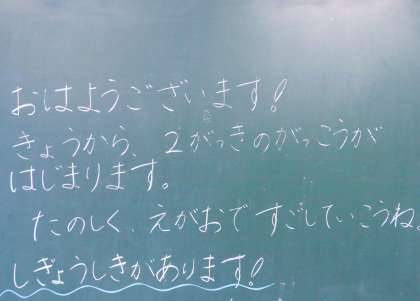 おはようございます!
きょうから、2がっきのがっこうが
はじまります。
たのしく、えがおですごしていこうね。
しぎょうしきがあります!